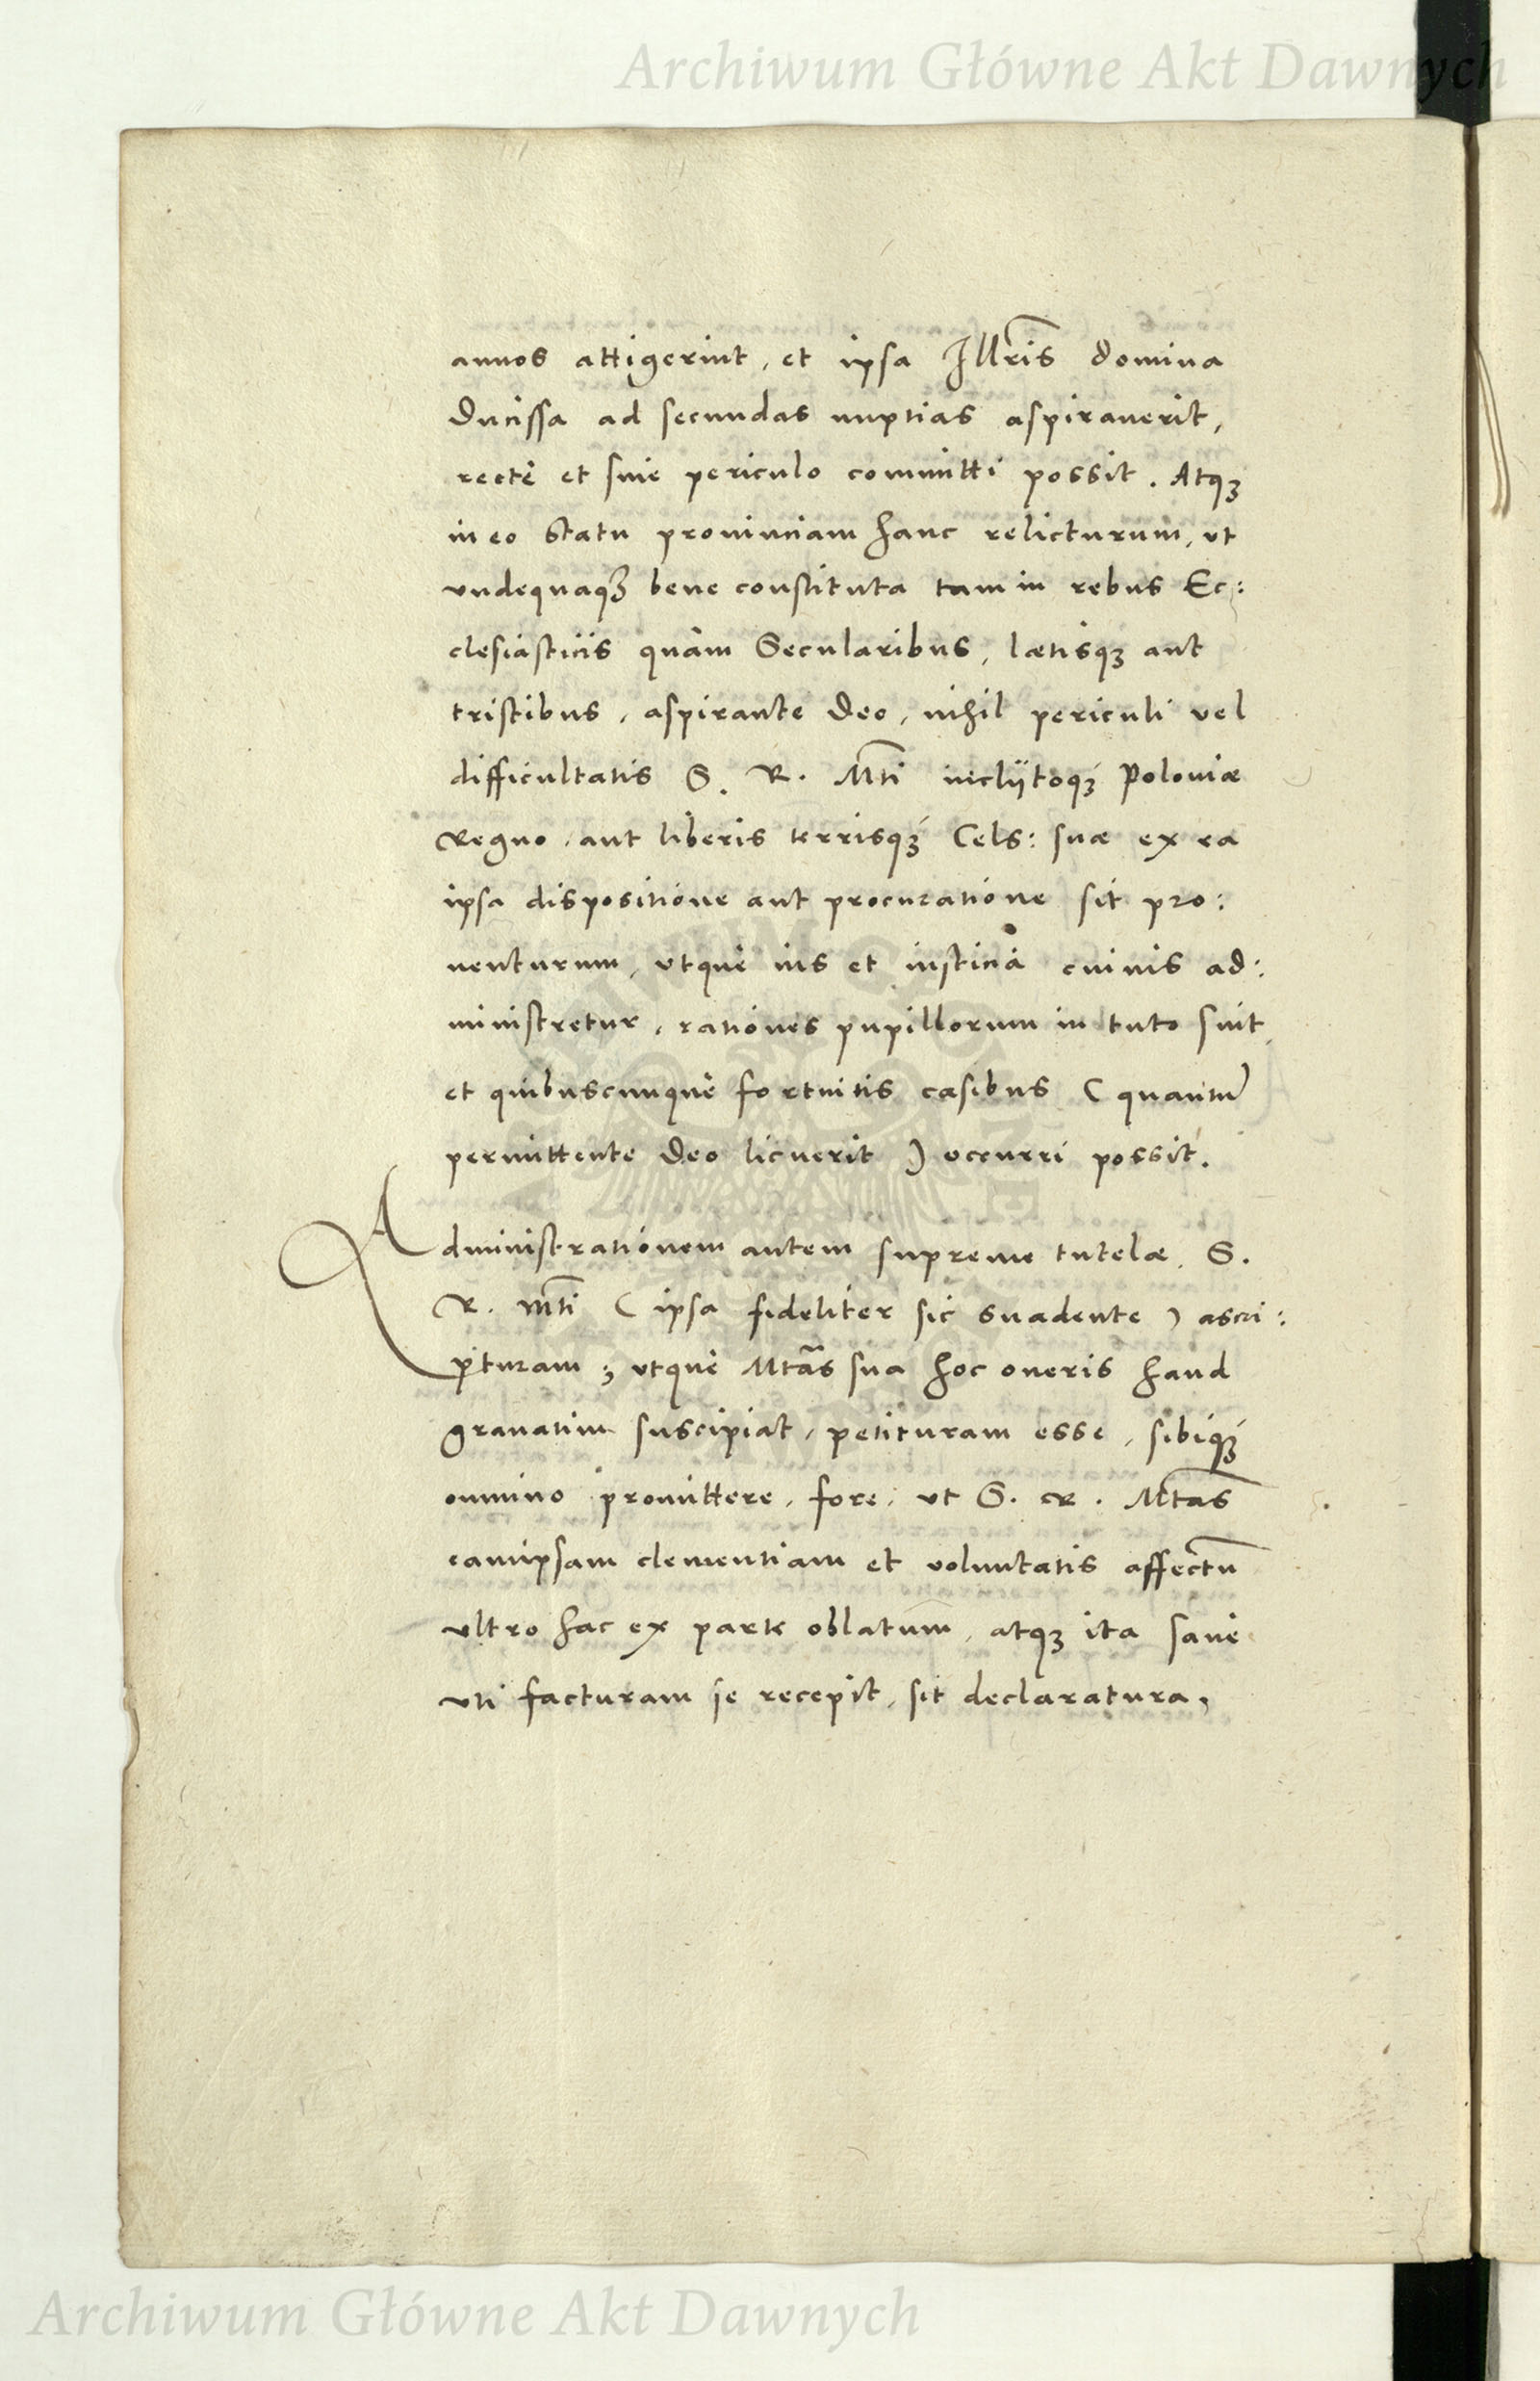 Archiwum Główne Akt Dawnych
annos attigerint, et ipsa Illris domina
Ducissa ad secundas nuptias aspirauerit,
rectè et sine periculo committi possit. Atq3
in eo statu prouinciam hanc relicturum, vt
vndequaq3 bene constituta tam in rebus Ec:
clesiasticis quàm Secularibus, lætisq3 aut
tristibus, aspirante Deo, nihil periculi vel
difficultatis S. R. Mti inclÿtoq3 Poloniæ
Regno, aut liberis terrisq3 Cels: suæ ex ea
ipsa dispositione aut procuratione sit pro:
uenturum, vtquè ius et iusticia cuiuis ad:
ministretur, rationes pupillorum in tuto sint,
et quibuscunquè fortuitis casibus (quantũ
permittente Deo licuerit) occurri possit.
Administrationem autem supreme tutelæ, S.
R. Mti (ipsa fideliter sic suadente) ascri:
pturam; vtquè Mtas sua hoc oneris haud
grauatim suscipiat, petituram esse, sibiq3
omnino promittere, fore, vt S. R. Mtas
eamipsam clementiam et voluntatis affectũ
vltro hac ex parte oblatum, atq3 ita sane
vti facturam se recepit, sit declaratura,
Archiwum Główne Akt Dawnych